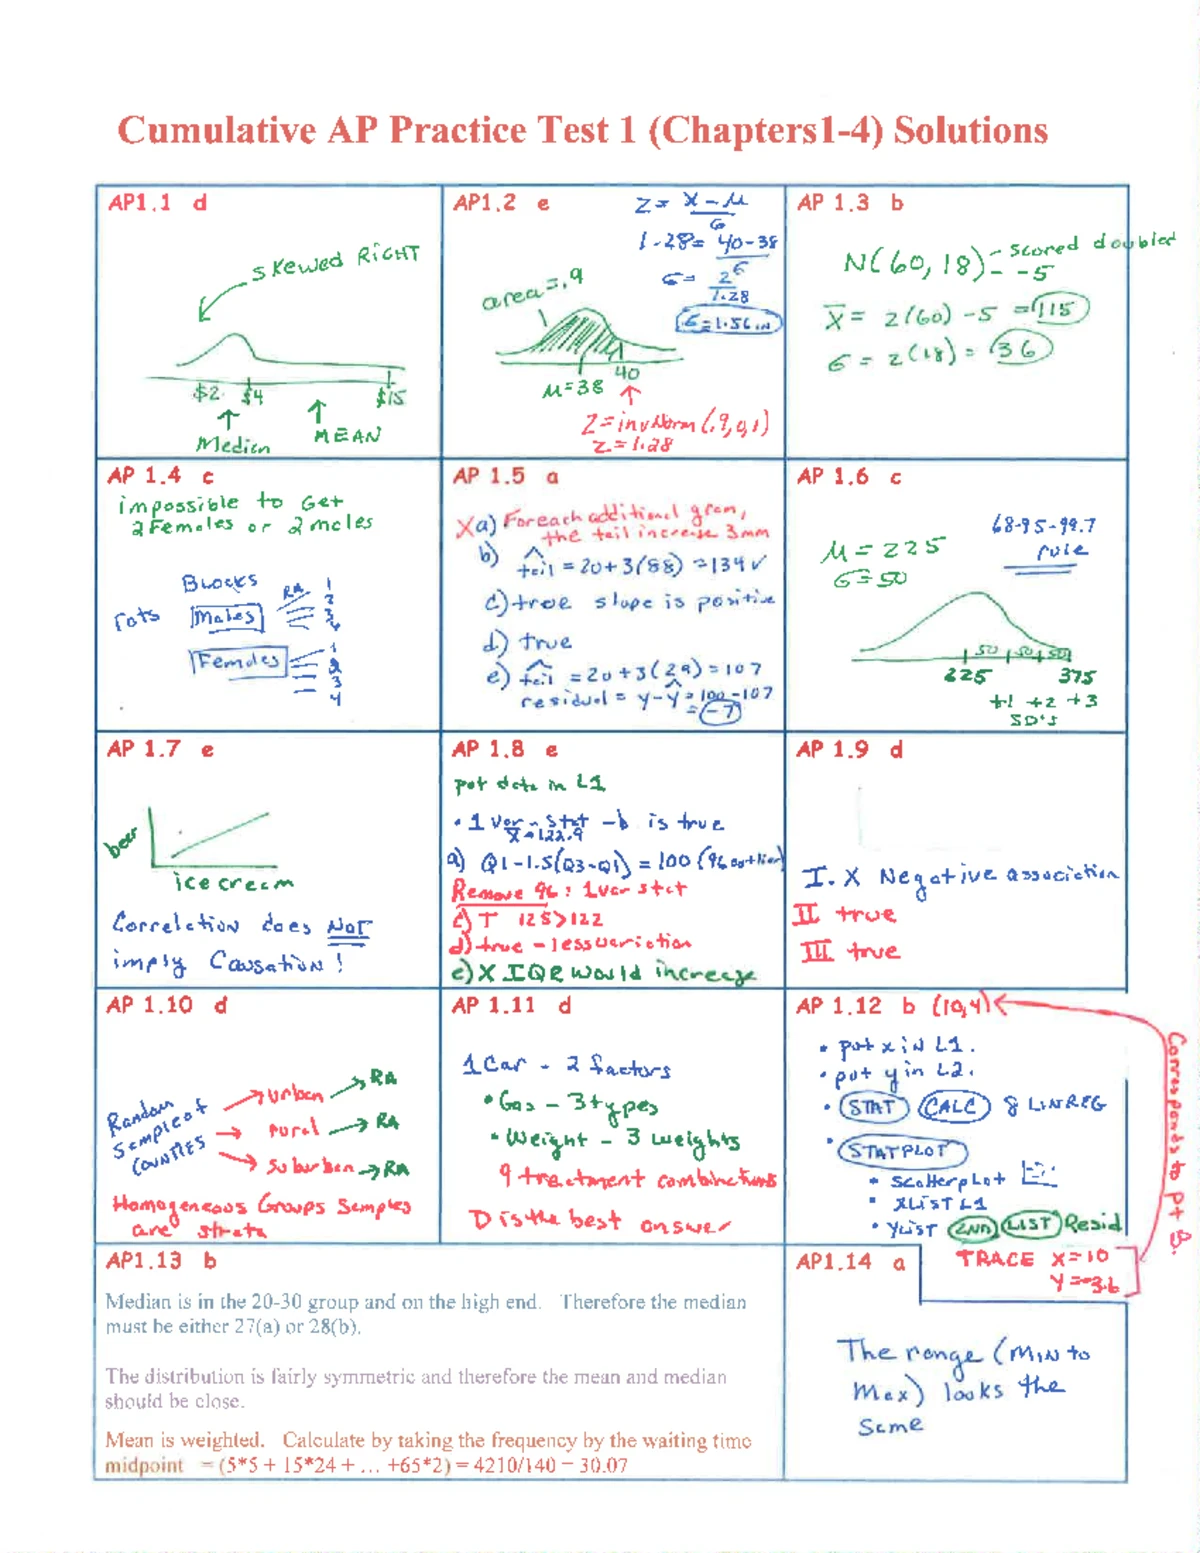 Cumulative AP Practice Test 1 (Chapters1-4) Solutions
AP1.1 d
skewed RIGHT
$2 $4 $15
Median
MEAN
AP1.2 e
Z = X - μ
σ
1.28 = 40-38
σ
σ = 2
1.28
σ = 1.56 in
area = .9
40
μ=38
Z = invNorm(.9,0,1)
Z = 1.28
AP 1.3 b
N(60, 18) - scored doubled
- -5
X̄ = 2(60) - 5 = 115
σ = 2(18) = 36
AP 1.4 c
impossible to Get
2 Females or 2 males
Blocks
RA
rats
Males
1
2
3
4
Females
1
2
3
4
AP 1.5 a
X a) For each additional gram,
the tail increase 3mm
b) tail = 20+3(88) = 134 ✓
c) true slope is positive
d) true
e) tail = 20+3(29) = 107
residual = y-ŷ = 100-107
= -7
AP 1.6 c
68-95-99.7
rule
μ = 225
σ = 50
50 50 50
225 375
+1 +2 +3
SD's
AP 1.7 e
beer
ice cream
Correlation does NOT
imply Causation!
AP 1.8 e
put data in L1
• 1 Var - Stat - b is true
X̄ = 122.9
a) Q1-1.5(Q3-Q1) = 100 (96 outlier)
Remove 96: 1 var stat
c) T 125>122
d) true - less variation
e) X IQR would increase
AP 1.9 d
I. X Negative association
II true
III true
AP 1.10 d
Random
Sample of
COUNTIES
urban RA
rural RA
Suburban RA
Homogeneous Groups Samples
are strata
AP 1.11 d
1 Car - 2 factors
• Gas - 3 types
• Weight - 3 weights
9 treatment combinations
D is the best answer
AP 1.12 b (10,4)
• put x in L1.
• put y in L2.
• STAT CALC 8 LINREG
• STATPLOT
• Scatterplot
• XLIST L1
• YLIST 2ND LIST Resid
TRACE X=10
Y=-3.6
Corresponds to pt B.
AP1.13 b
Median is in the 20-30 group and on the high end. Therefore the median
must be either 27(a) or 28(b).
The distribution is fairly symmetric and therefore the mean and median
should be close.
Mean is weighted. Calculate by taking the frequency by the waiting time
midpoint = (5*5 + 15*24 + ... +65*2) = 4210/140 = 30.07
AP1.14 a
The range (MIN to
Max) looks the
same